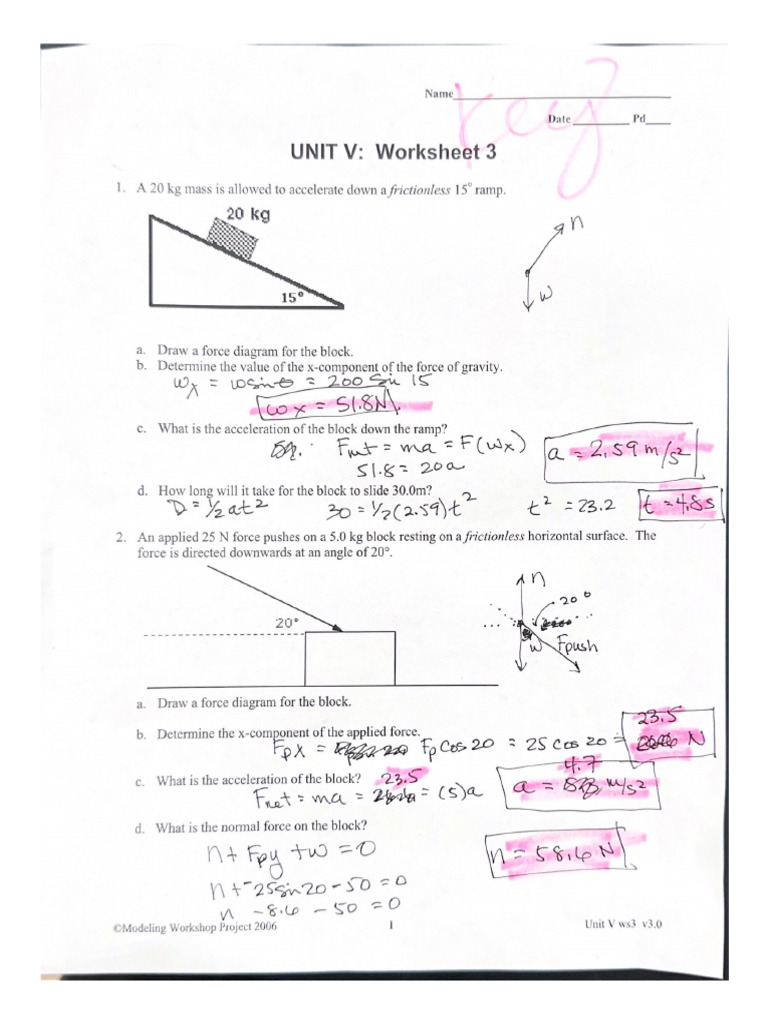 Name
key
Date Pd
UNIT V: Worksheet 3
1. A 20 kg mass is allowed to accelerate down a frictionless 15° ramp.
20 kg
15°
n
w
a. Draw a force diagram for the block.
b. Determine the value of the x-component of the force of gravity.
wx = wsinθ = 200 sin 15
wx = 51.8N.
c. What is the acceleration of the block down the ramp?
Fnet = ma = F(wx)
51.8 = 20a
a = 2.59 m/s²
d. How long will it take for the block to slide 30.0m?
D = ½at² 30 = 1/2(2.59)t² t² = 23.2 t = 4.8s
2. An applied 25 N force pushes on a 5.0 kg block resting on a frictionless horizontal surface. The
force is directed downwards at an angle of 20°.
20°
n
20°
w Fpush
a. Draw a force diagram for the block.
b. Determine the x-component of the applied force.
Fpx = Fp cos 20 = 25 cos 20 = 23.5 N
c. What is the acceleration of the block?
Fnet = ma = 23.5 = (5)a
a = 4.7 m/s²
d. What is the normal force on the block?
n + Fpy + w = 0
n + -25sin20 - 50 = 0
n - 8.6 - 50 = 0
n = 58.6 N
©Modeling Workshop Project 2006 1 Unit V ws3 v3.0